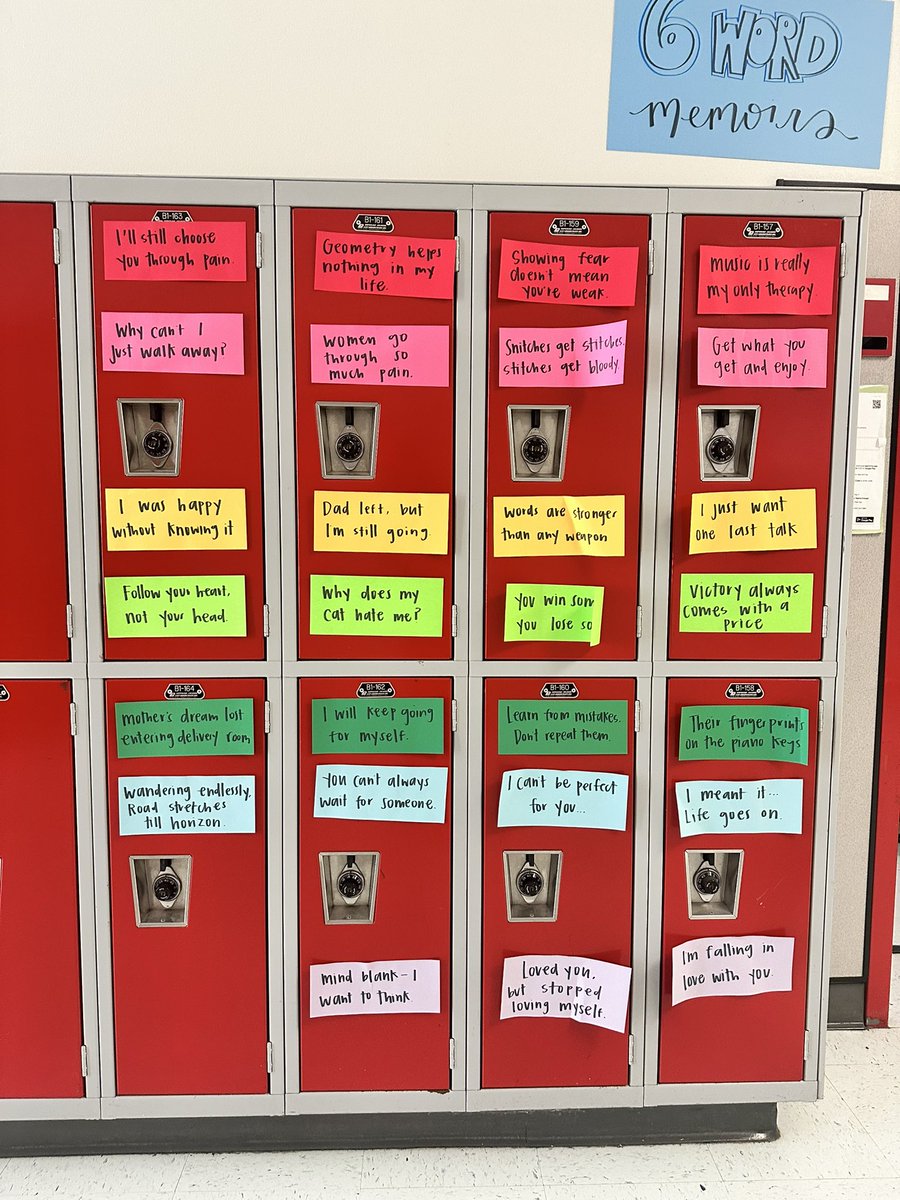 6 WORD
memoirs
B1-163
I'll still choose
you through pain.
Why can't I
just walk away?
I was happy
without knowing it
Follow your heart,
not your head.
B1-161
Geometry helps
nothing in my
life.
Women go
through so
much pain.
Dad left, but
I'm still going.
Why does my
cat hate me?
B1-159
Showing fear
doesn't mean
you're weak.
Snitches get stitches.
stitches get bloody.
Words are stronger
than any weapon
You win som
you lose so
B1-157
Music is really
my only therapy.
Get what you
get and enjoy.
I just want
one last talk
Victory always
comes with a
price
B1-164
mother's dream lost
entering delivery room
Wandering endlessly.
Road stretches
till horizon.
B1-162
I will keep going
for myself.
You cant always
wait for someone.
mind blank - I
want to think
B1-160
Learn from mistakes.
Dont repeat them.
I can't be perfect
for you...
Loved you,
but stopped
loving myself.
B1-158
Their fingerprints
on the piano keys
I meant it...
Life goes on.
Im falling in
love with you.